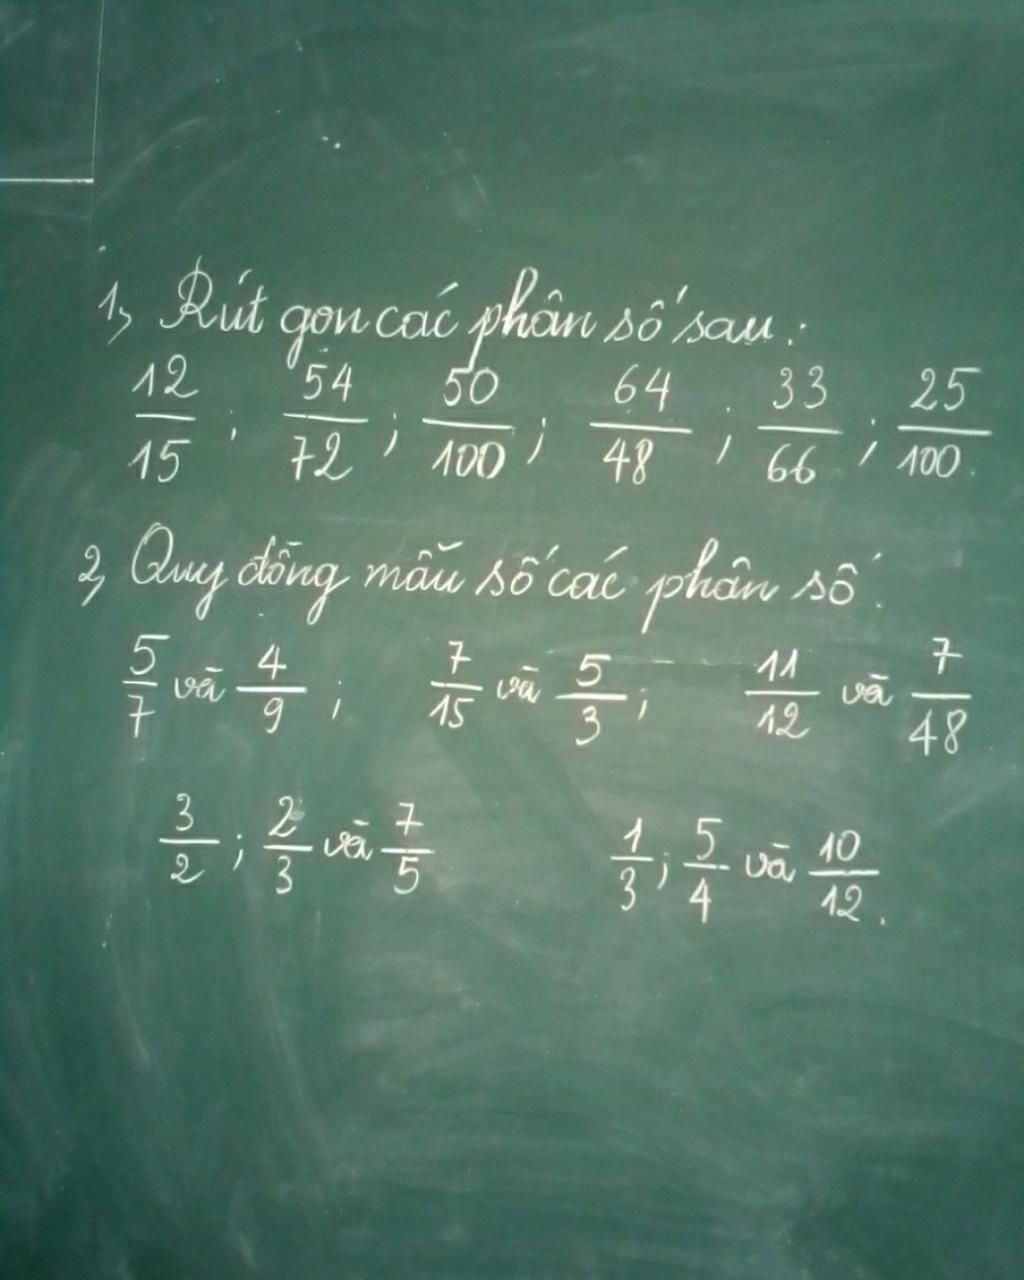 1, Rút gọn các phân số sau:
12/15 ; 54/72 ; 50/100 ; 64/48 ; 33/66 ; 25/100.
2, Quy đồng mẫu số các phân số.
5/7 và 4/9 ; 7/15 và 5/3 ; 11/12 và 7/48
3/2 ; 2/3 và 7/5 1/3 ; 5/4 và 10/12.